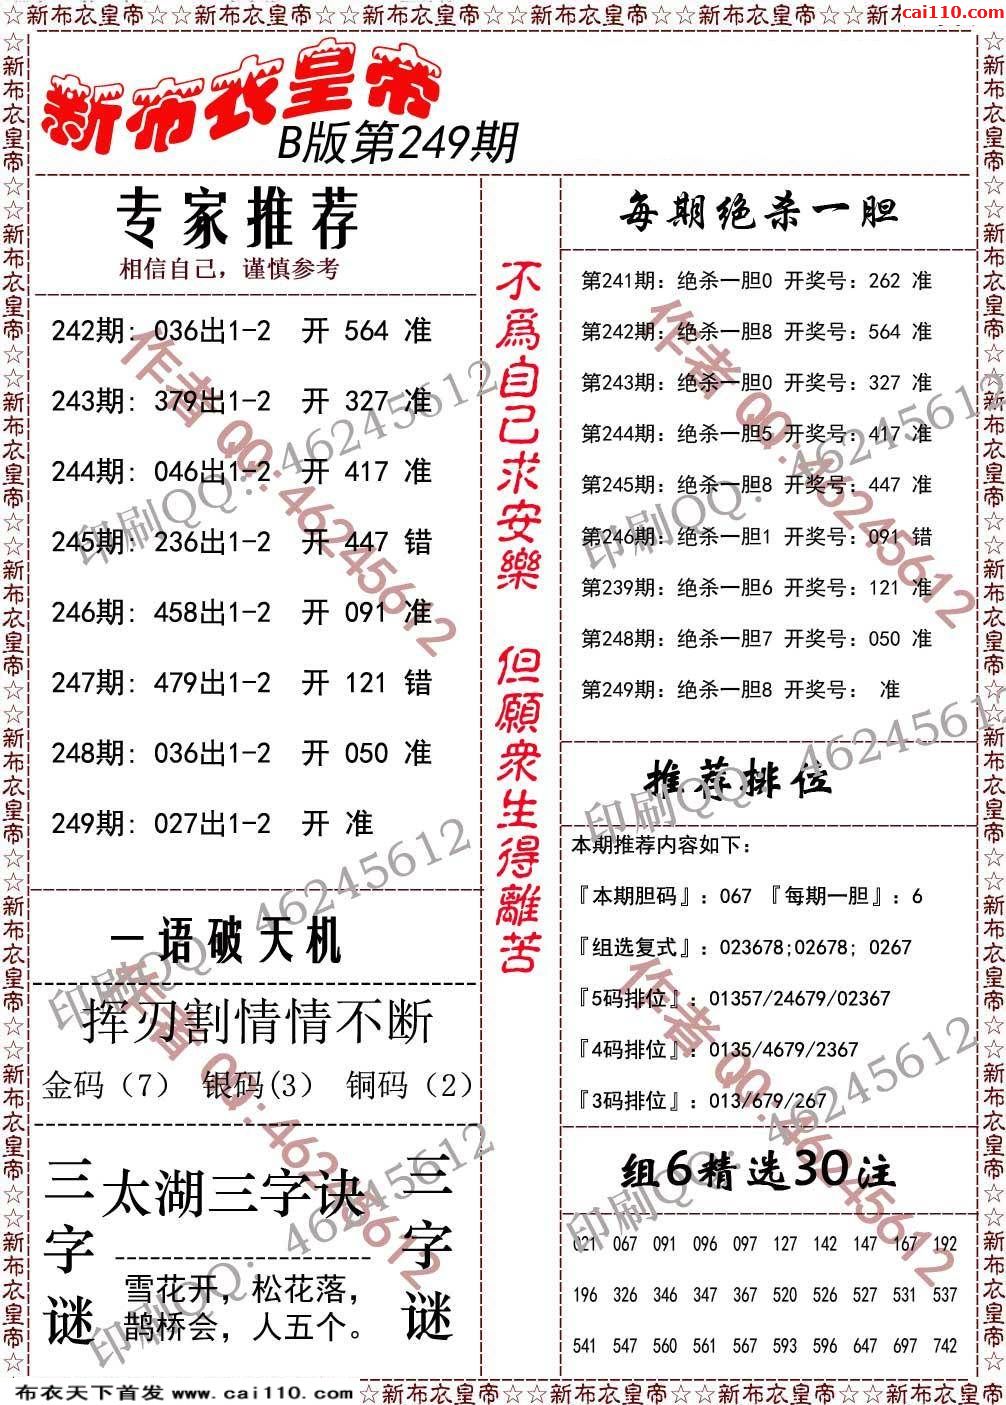 ☆新布衣皇帝☆新布衣皇帝☆新布衣皇帝☆新布衣皇帝☆新布衣皇帝☆新布衣皇帝☆新
cai110.com
新布衣皇帝
B版第249期
专家推荐
相信自己，谨慎参考
242期: 036出1-2 开 564 准
243期: 379出1-2 开 327 准
244期: 046出1-2 开 417 准
245期: 236出1-2 开 447 错
246期: 458出1-2 开 091 准
247期: 479出1-2 开 121 错
248期: 036出1-2 开 050 准
249期: 027出1-2 开 准
一语破天机
挥刃割情情不断
金码（7） 银码(3） 铜码（2）
三字谜
太湖三字诀
雪花开，松花落，
鹊桥会，人五个。
三字谜
不為自己求安樂 但願衆生得離苦
每期绝杀一胆
第241期: 绝杀一胆0 开奖号: 262 准
第242期: 绝杀一胆8 开奖号: 564 准
第243期: 绝杀一胆0 开奖号: 327 准
第244期: 绝杀一胆5 开奖号: 417 准
第245期: 绝杀一胆8 开奖号: 447 准
第246期: 绝杀一胆1 开奖号: 091 错
第239期: 绝杀一胆6 开奖号: 121 准
第248期: 绝杀一胆7 开奖号: 050 准
第249期: 绝杀一胆8 开奖号: 准
推荐排位
本期推荐内容如下:
『本期胆码』: 067 『每期一胆』: 6
『组选复式』: 023678;02678; 0267
『5码排位』: 01357/24679/02367
『4码排位』: 0135/4679/2367
『3码排位』: 013/679/267
组6精选30注
021 067 091 096 097 127 142 147 167 192
196 326 346 347 367 520 526 527 531 537
541 547 560 561 567 593 596 647 697 742
作者 QQ: 46245612
印刷QQ: 46245612
作者 QQ: 46245612
印刷QQ: 46245612
印刷QQ: 46245612
印刷QQ: 46245612
作者 QQ: 46245612
作者 QQ: 46245612
印刷QQ: 46245612
印刷QQ: 46245612
布衣天下首发 www.cai110.com
☆新布衣皇帝☆新布衣皇帝☆新布衣皇帝☆新布衣皇帝☆